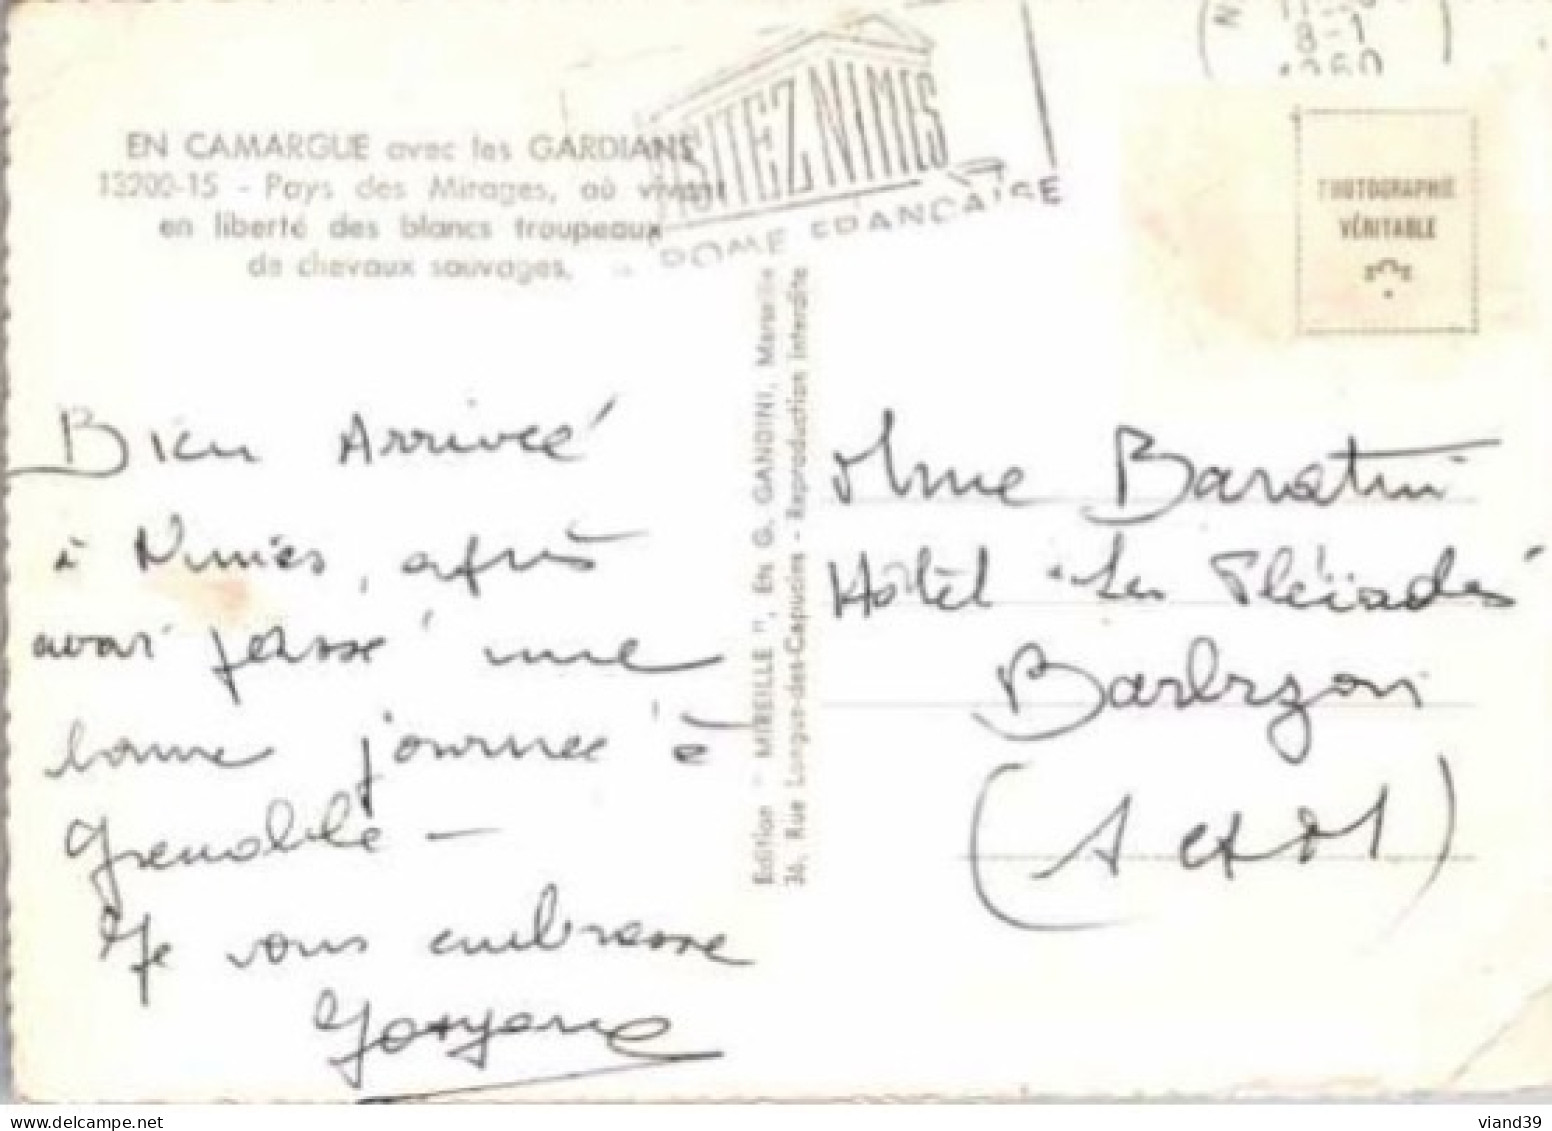 EN CAMARGUE avec les GARDIANS
13200-15 - Pays des Mirages, où vivent
en liberté des blancs troupeaux
de chevaux sauvages.
VISITEZ NIMES
ROME FRANCAISE
8-1
1960
PHOTOGRAPHIE
VÉRITABLE
Edition " MIREILLE ", En G. GANDINI, Marseille
36, Rue Longue-des-Capucins - Reproduction interdite
Bien Arrivée
à Nimes, après
avoir passé une
bonne journée à
Grenoble —
Je vous embrasse
Mme Baratini
Hôtel "Les Pléïades"
Barbizon
(S et M)
viand39